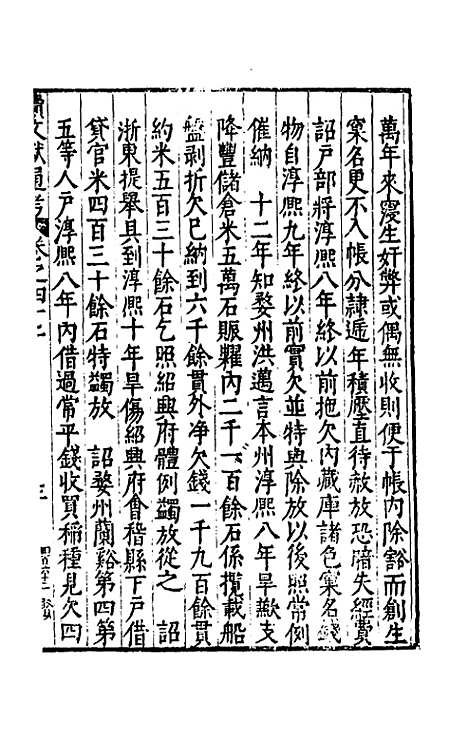 萬年來寖生奸弊或偶無收則便于帳內除豁而創生
窠名更不入帳分隷逓年積壓直待赦放恐暗失經費
詔戸部將淳熈八年終以前把欠內藏庫諸色窠名錢
物自淳熈九年終以前實欠並特與除放以後照常例
催納　十二年知婺州洪邁言本州淳熈八年旱歉支
降豐儲倉米五萬石賑糶內二千一百餘石係攬載船
盤剥折欠已納到六千餘貫外净欠錢一千九百餘貫
約米五百三十餘石乞照紹興府體例蠲放從之　詔
浙東提舉具到淳熈十年旱傷紹興府會稽縣下戸借
貸官米四百三十餘石特蠲放　詔婺州蘭谿第四第
五等人戸淳熈八年內借過常平錢收買稻種見欠四
續文獻通考　卷之四十七　三